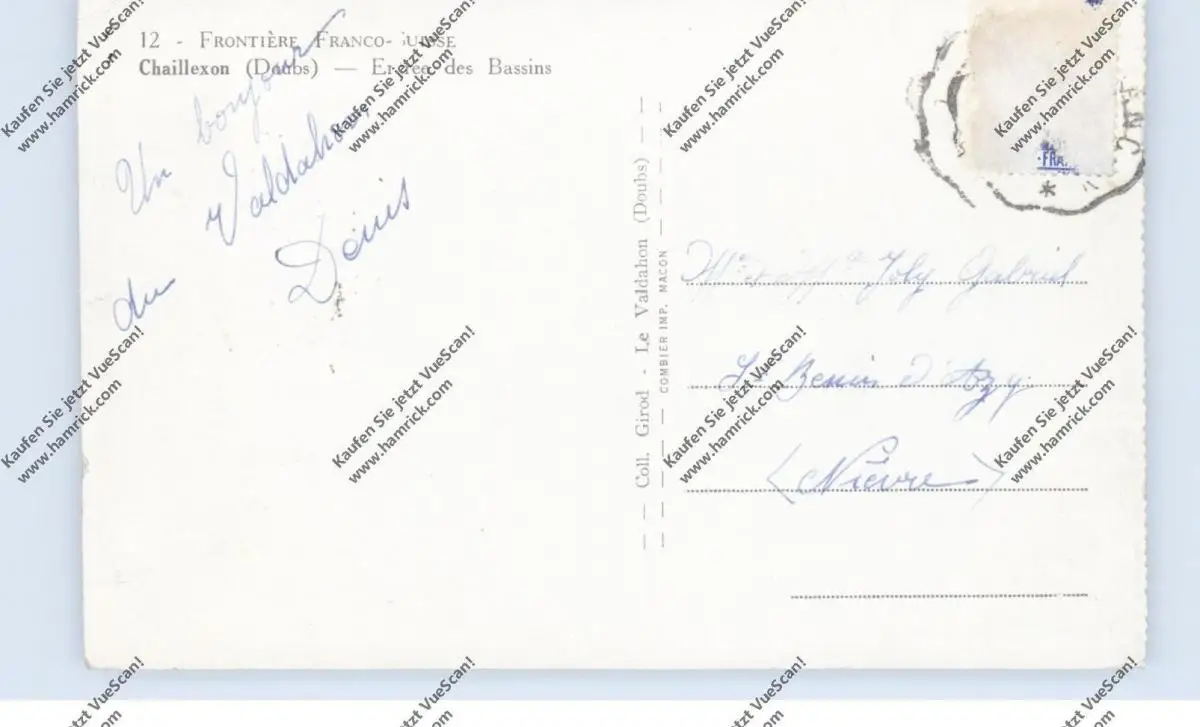 12 - FRONTIÈRE FRANCO-SUISSE
Chaillexon (Doubs) — Entrée des Bassins
Un bonjour
du Valdahon
Denis
Coll. Girod - Le Valdahon (Doubs)
COMBIER IMP. MACON
FRA
Mr et Mme Joly Gabriel
St Benin d'Azy
(Nièvre)
Kaufen Sie jetzt VueScan!
www.hamrick.com